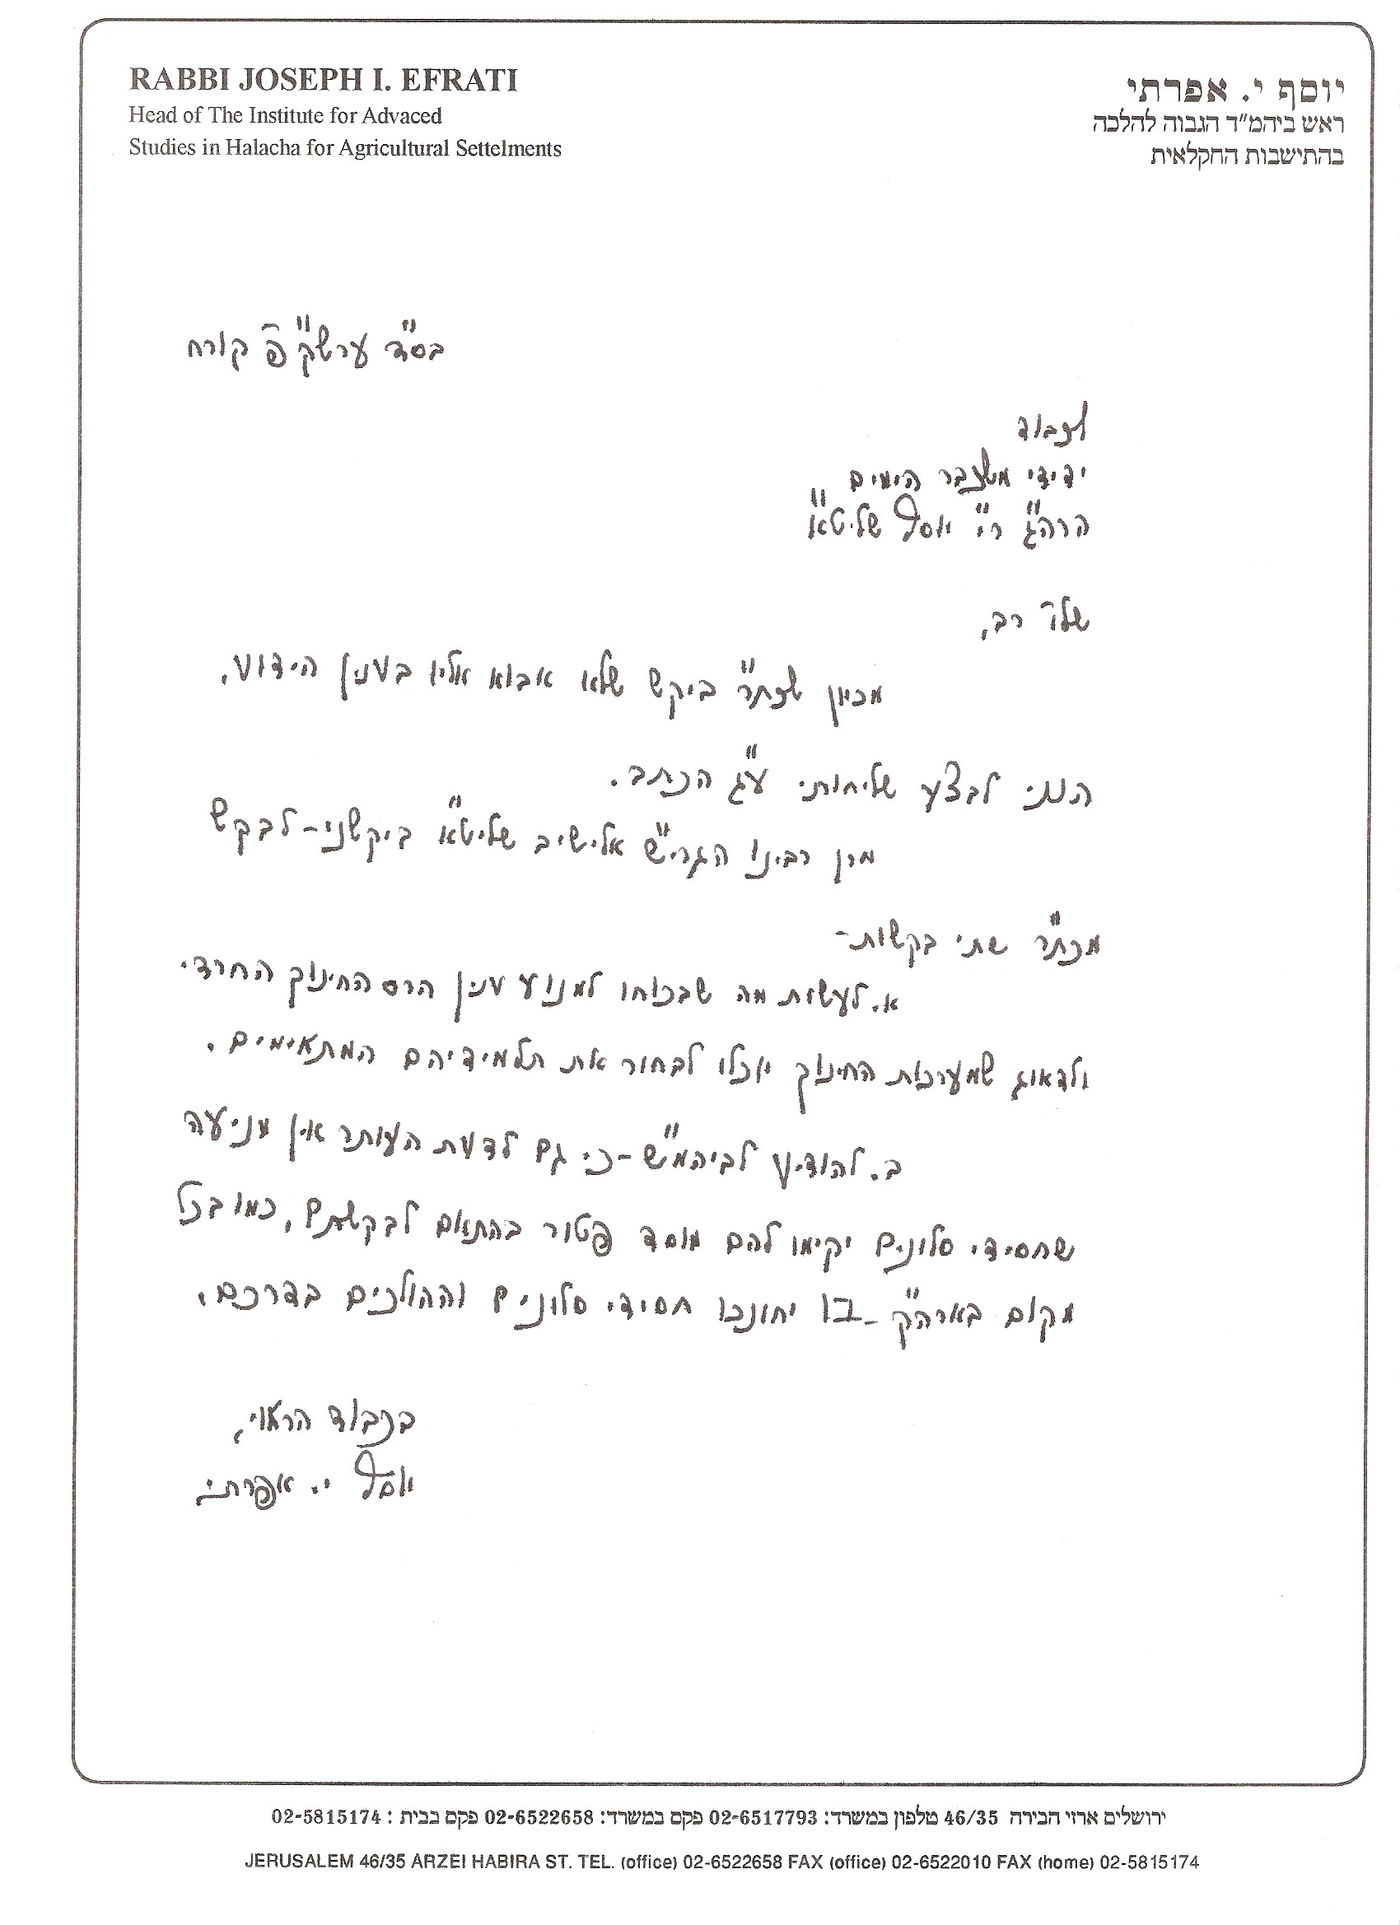 RABBI JOSEPH I. EFRATI
Head of The Institute for Advaced
Studies in Halacha for Agricultural Settelments
יוסף י. אפרתי
ראש ביהמ"ד הגבוה להלכה
בהתישבות החקלאית
בס"ד ערשק"פ קורח
לכבוד
ידידי משכבר הימים
הרה"ג ר"י יוסף שליט"א
שלו' רב,
מכיון שכת"ר ביקש שלא אבוא אליו בענין הידוע,
הנני לבצע שליחותי ע"ג הכתב.
מרן רבינו הגרי"ש אלישיב שליט"א ביקשני - לבקש
מכת"ר שתי בקשות -
א. לעשות מה שבכוחו למנוע ענין הרס החינוך החרדי.
ולדאוג שמערכות החינוך יוכלו לבחור את תלמידיהם המתאימים.
ב. להודיע לביהמ"ש - כי גם לדעת העותר אין מניעה
שחסידי סלונים יקימו להם מוסד פטור בהתאם לבקשתם, כמו בכל
מקום בארה"ק - בו יחונכו חסידי סלונים וההולכים בדרכם.
בכבוד הראוי,
יוסף י. אפרתי
ירושלים ארזי הבירה 46/35 טלפון במשרד: 02-6517793 פקס במשרד: 02-6522658 פקס בבית : 02-5815174
JERUSALEM 46/35 ARZEI HABIRA ST. TEL. (office) 02-6522658 FAX (office) 02-6522010 FAX (home) 02-5815174